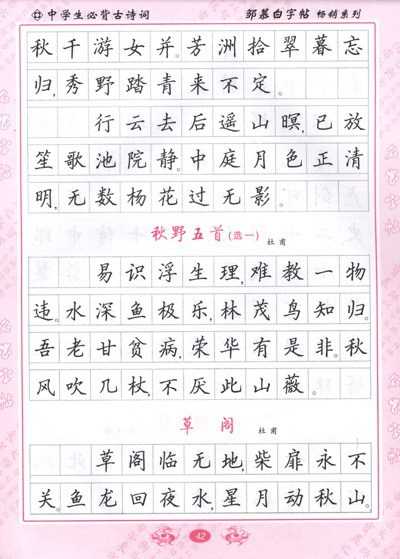 中学生必背古诗词 邹慕白字帖 畅销系列
秋千游女并。芳洲拾翠暮忘
归,秀野踏青来不定。
行云去后遥山暝,已放
笙歌池院静。中庭月色正清
明,无数杨花过无影。
秋野五首(选一) 杜甫
易识浮生理,难教一物
违。水深鱼极乐,林茂鸟知归。
吾老甘贫病,荣华有是非。秋
风吹几杖,不厌此山薇。
草阁 杜甫
草阁临无地,柴扉永不
关。鱼龙回夜水,星月动秋山。
42